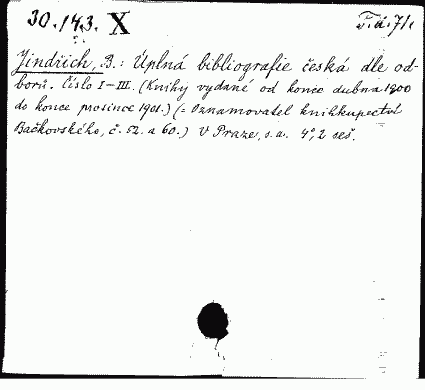 30.143. X
Jindřich, B.: Úplná bibliografie česká dle od-
borů. Číslo I-III. (Knihy vydané od konce dubna 1900
do konce prosince 1901.) (= Oznamovatel knihkupectví
Bačkovského, č. 52. a 60.) V Praze, s.a. 4°, 2 seš.